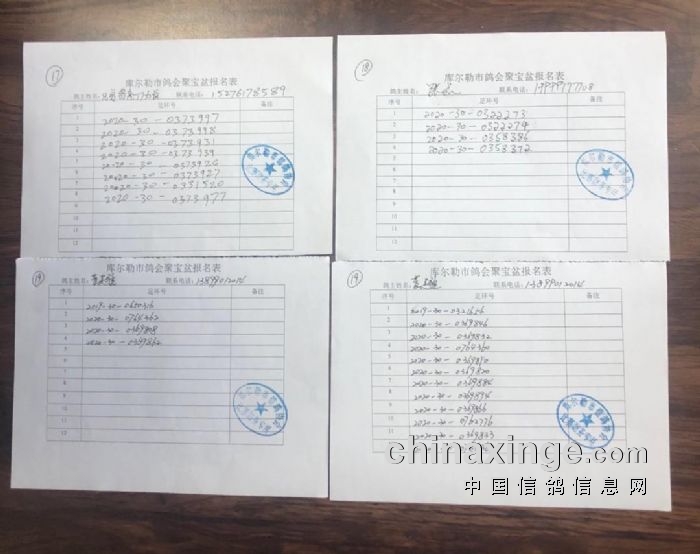 17
库尔勒市鸽会聚宝盆报名表
鸽主姓名: 联系电话: 15276178589
序号 足环号 备注
1 2020-30-0373997
2 2020-30-0373998
3 2020-30-0373931
4 2020-30-0373939
5 2020-30-0373926
6 2020-30-0373927
7 2020-30-0351520
8 2020-30-0373977
9
10
11
12
18
库尔勒市鸽会聚宝盆报名表
鸽主姓名: 联系电话:
序号 足环号 备注
1 2020-30-0322273
2 2020-30-0322274
3 2020-30-0358386
4 2020-30-0358372
5
6
7
8
9
10
11
12
19
库尔勒市鸽会聚宝盆报名表
鸽主姓名: 联系电话: 13899012016
序号 足环号 备注
1 2019-30-0650316
2 2020-30-0764362
3 2020-30-0369808
4 2020-30-0369862
5
6
7
8
9
10
11
12
19
库尔勒市鸽会聚宝盆报名表
鸽主姓名: 联系电话: 13899012016
序号 足环号 备注
1 2019-30-0321656
2 2020-30-0369846
3 2020-30-0369832
4 2020-30-0764360
5 2020-30-0369810
6 2020-30-0369820
7 2020-30-0369884
8 2020-30-0369894
9 2020-30-0369866
10 2020-30-0762736
11 2020-30-0369823
chinaxinge.com
中国信鸽信息网